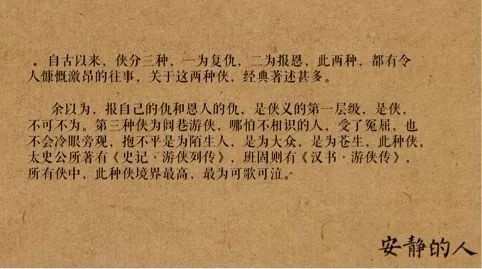 。自古以来，侠分三种，一为复仇，二为报恩，此两种，都有令
人慷慨激昂的往事，关于这两种侠，经典著述甚多。
余以为，报自己的仇和恩人的仇，是侠义的第一层级，是侠，
不可不为。第三种侠为闾巷游侠，哪怕不相识的人，受了冤屈，也
不会冷眼旁观，抱不平是为陌生人，是为大众，是为苍生，此种侠，
太史公所著有《史记·游侠列传》，班固则有《汉书·游侠传》，
所有侠中，此种侠境界最高，最为可歌可泣。
安静的人